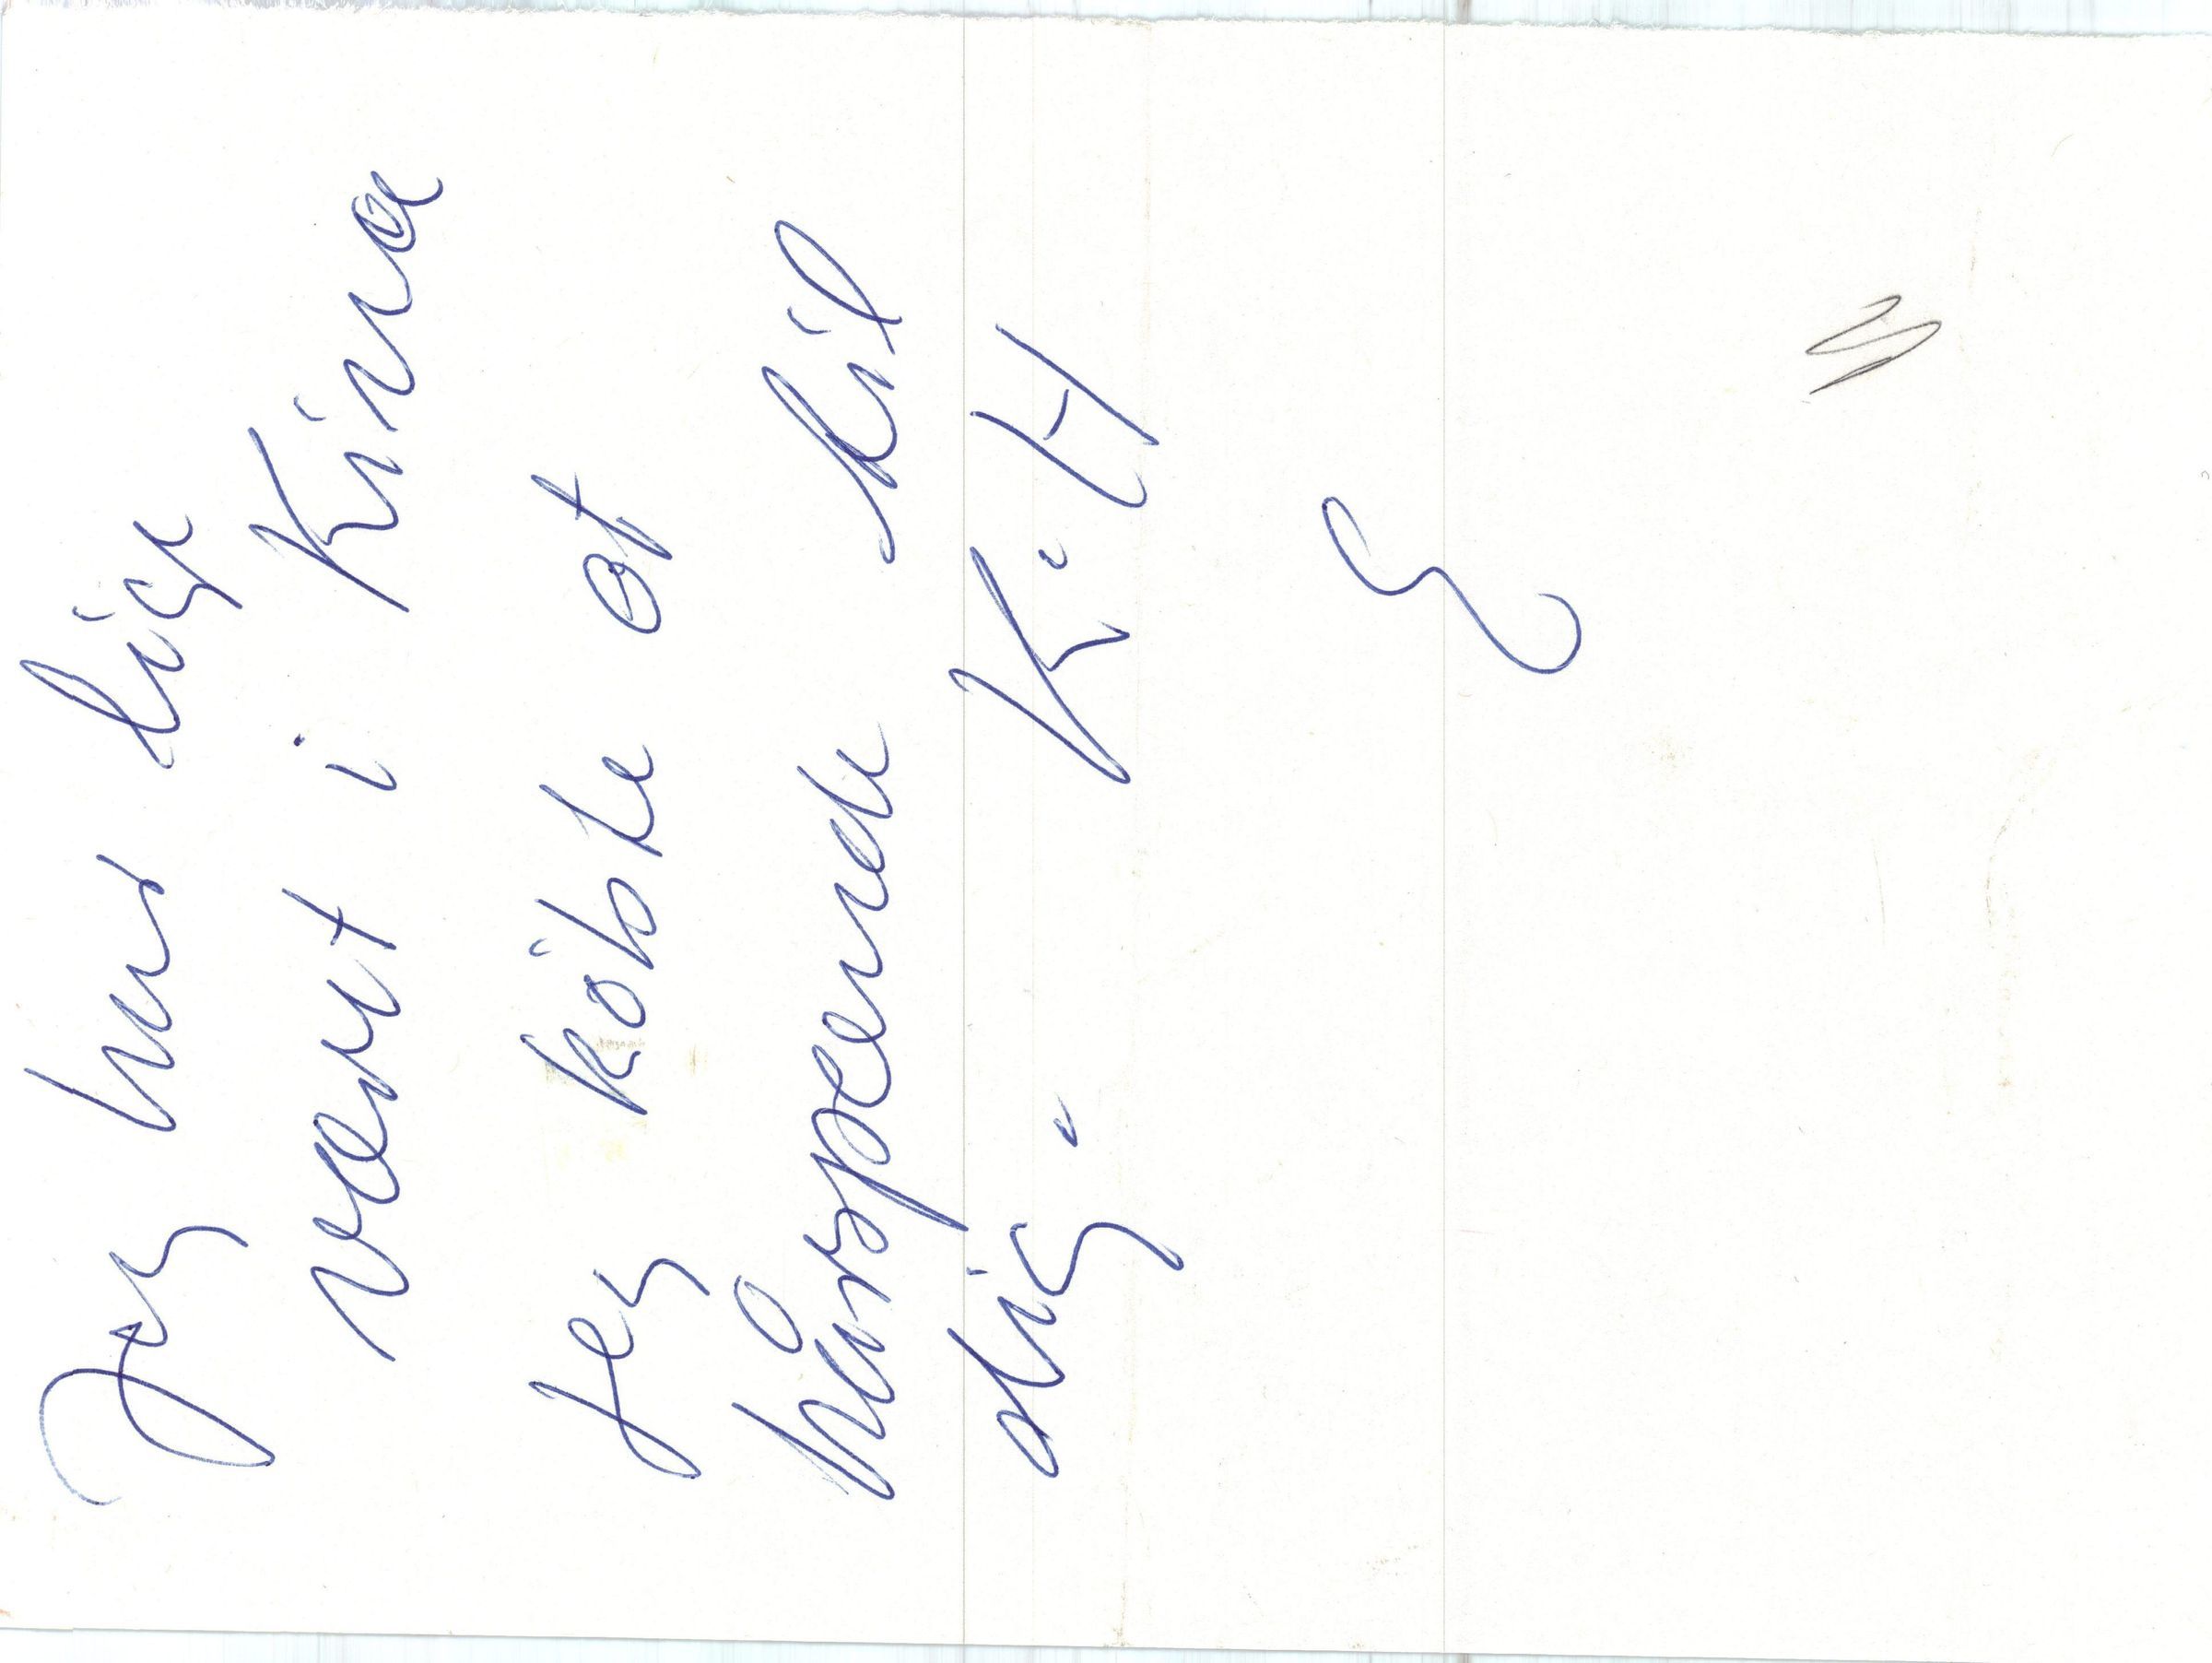 Jeg har lige
været i Kina
Jeg köbte et
hårspænde til
dig. K.H
E